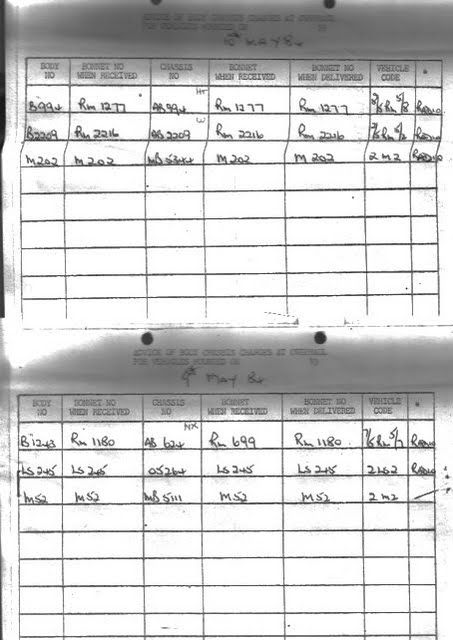 ADVICE OF BODY CHASSIS CHANGES AT OVERHAUL
FOR VEHICLES MOUNTED ON 19
10th MAY 84
BODY NO BONNET NO WHEN RECEIVED CHASSIS NO BONNET WHEN RECEIVED BONNET NO WHEN DELIVERED VEHICLE CODE *
B994 RM 1277 AB994 HT RM 1277 RM 1277 RADIO
B2209 RM 2216 AB2209 W RM 2216 RM 2216 RADIO
M202 M202 MB5344 M202 M202 2 M2 RADIO
ADVICE OF BODY CHASSIS CHANGES AT OVERHAUL
FOR VEHICLES MOUNTED ON 19
9th MAY 84
BODY NO BONNET NO WHEN RECEIVED CHASSIS NO BONNET WHEN RECEIVED BONNET NO WHEN DELIVERED VEHICLE CODE *
B1243 RM 1180 AB 624 NX RM 699 RM 1180 RADIO
LS245 LS245 OS264 LS245 LS245 2LS2 RADIO
M52 M52 MB5111 M52 M52 2 M2